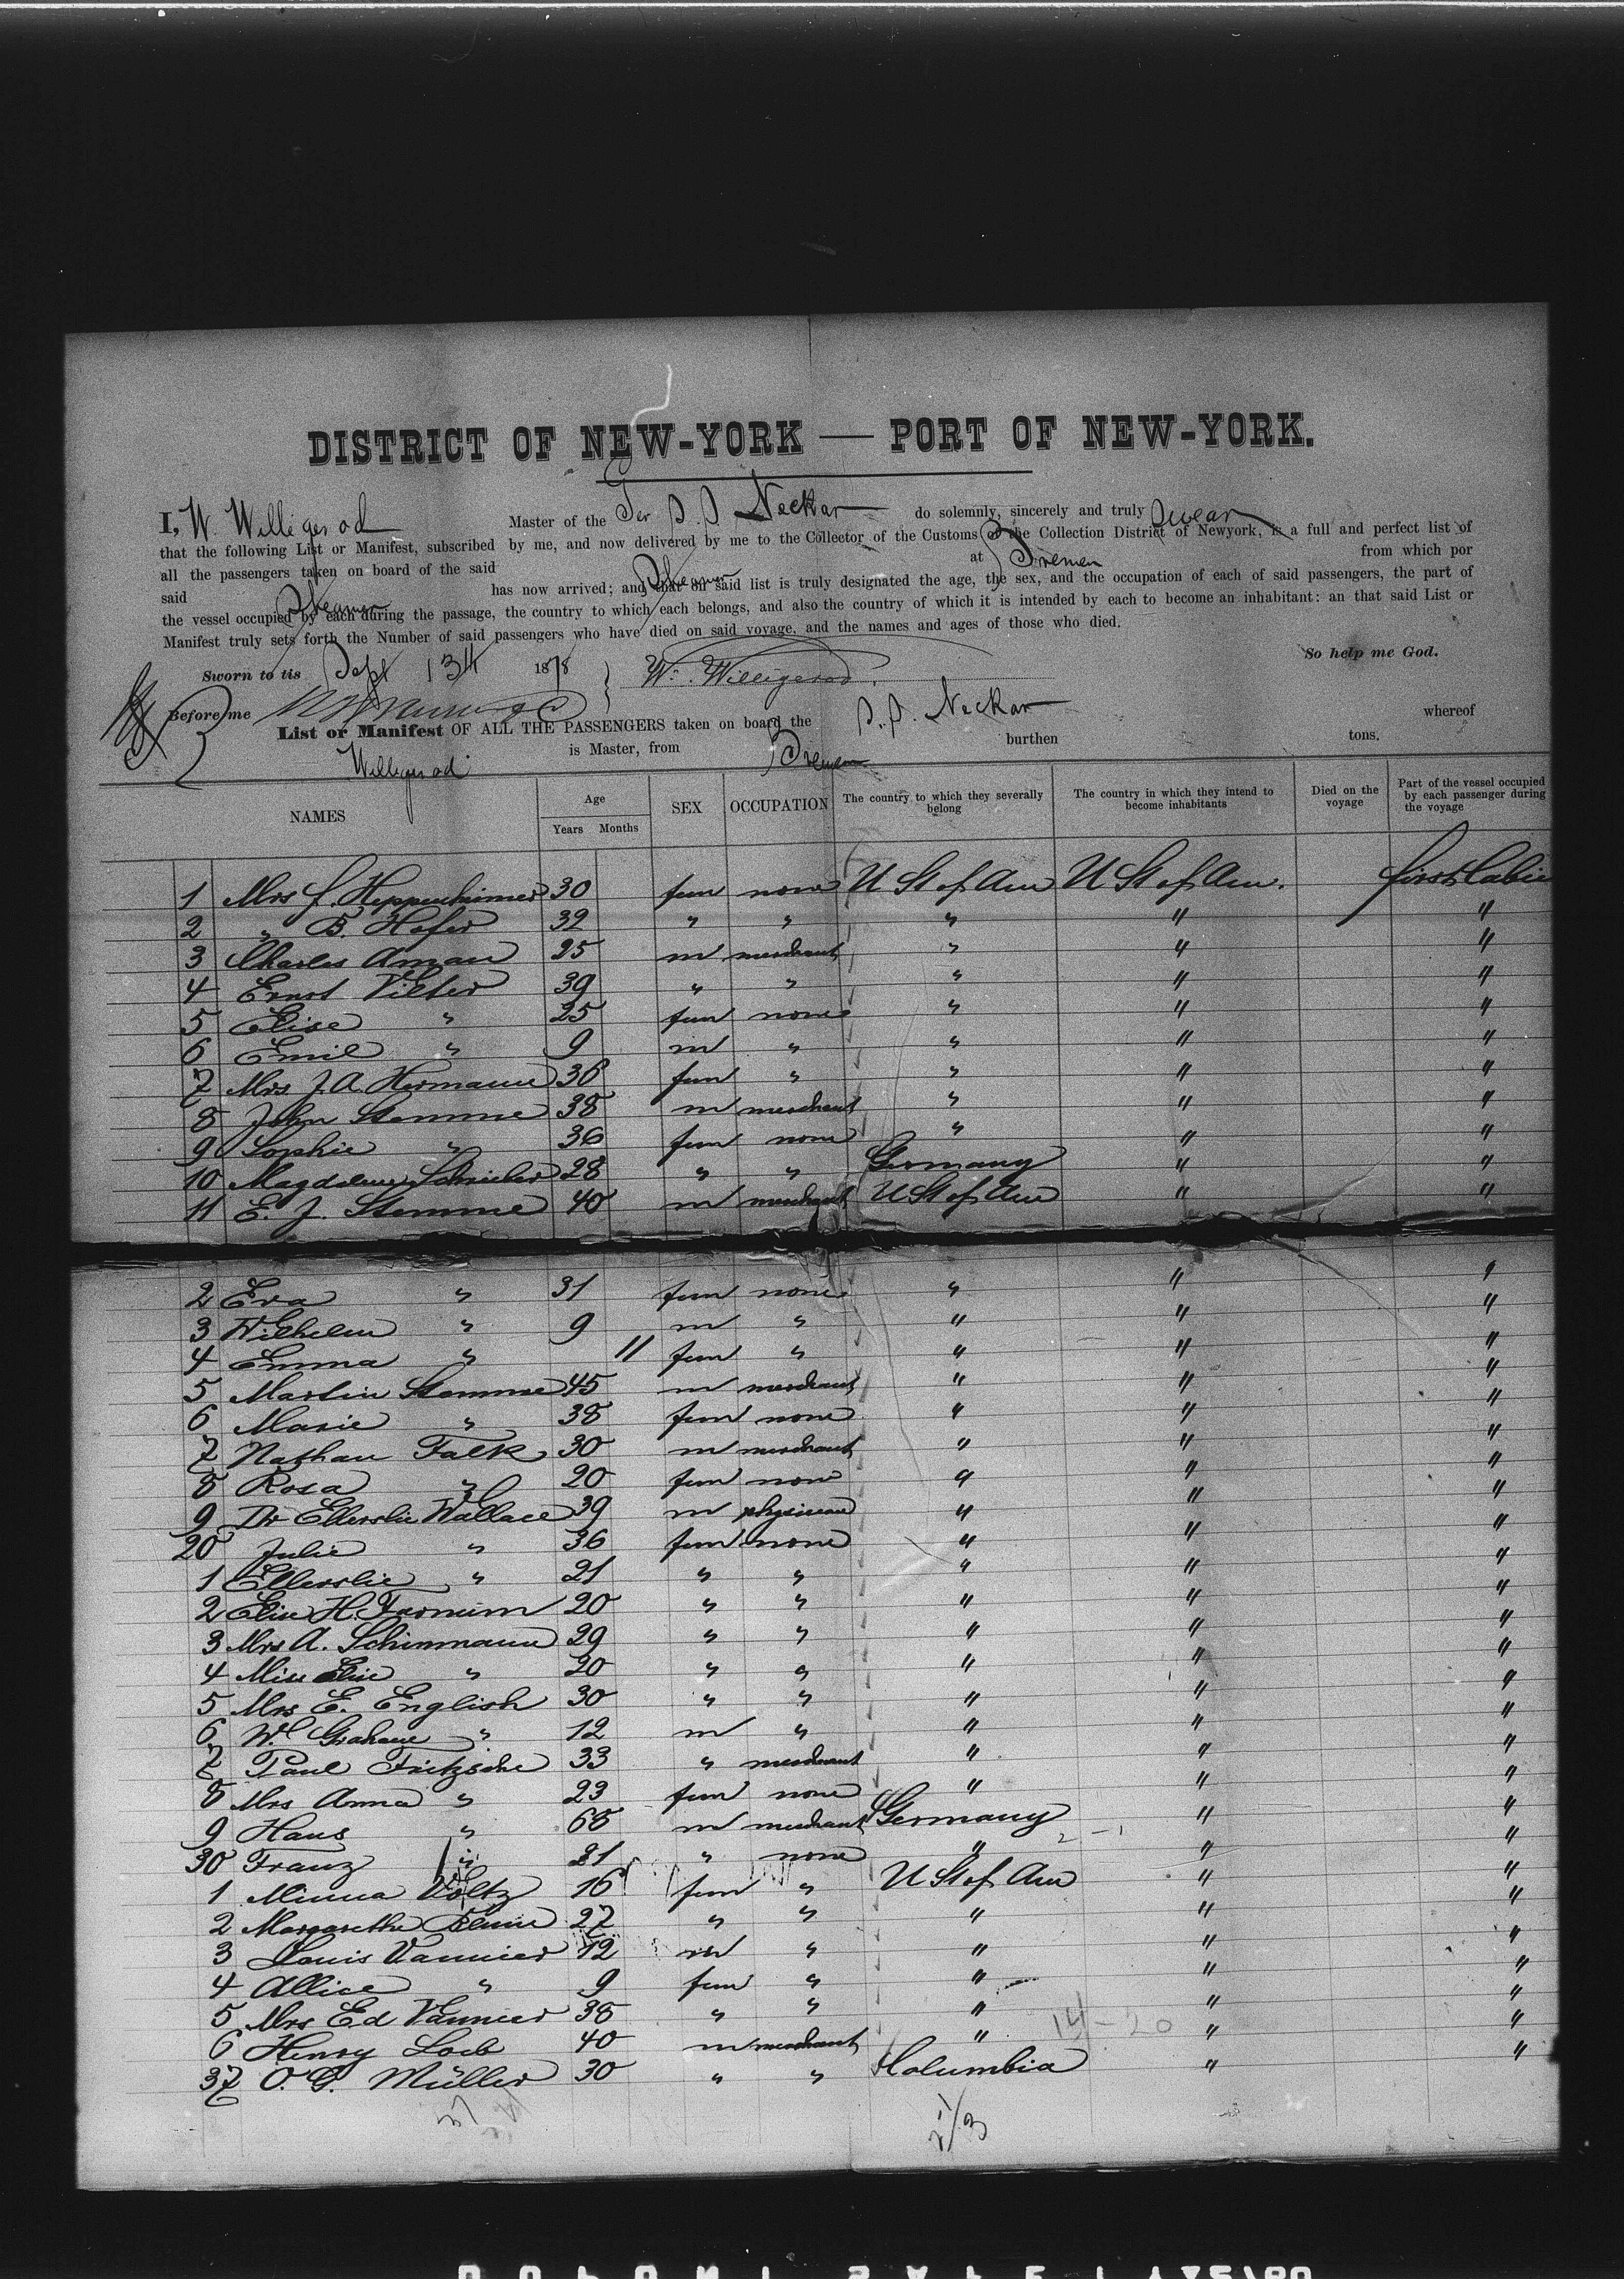 DISTRICT OF NEW-YORK — PORT OF NEW-YORK.
I, W. Willigerod Master of the Ger S. S. Neckar do solemnly, sincerely and truly swear
that the following List or Manifest, subscribed by me, and now delivered by me to the Collector of the Customs of the Collection District of Newyork, is a full and perfect list of
all the passengers taken on board of the said at Bremen from which por
said Steamer has now arrived; and that on said list is truly designated the age, the sex, and the occupation of each of said passengers, the part of
the vessel occupied by each during the passage, the country to which each belongs, and also the country of which it is intended by each to become an inhabitant: an that said List or
Manifest truly sets forth the Number of said passengers who have died on said voyage, and the names and ages of those who died.
So help me God.
Sworn to tis Sept 13th 1878 } W. Willigerod.
Before me
List or Manifest OF ALL THE PASSENGERS taken on board the S. S. Neckar whereof
Willigerod is Master, from Bremen burthen tons.
NAMES Age Years Months SEX OCCUPATION The country to which they severally belong The country in which they intend to become inhabitants Died on the voyage Part of the vessel occupied by each passenger during the voyage
1 Mrs J. Heppenheimer 30 fem none U St of Am U St of Am. first Cabin
2 " B. Hofer 32 " " " " "
3 Charles Aman 25 m merchant " " "
4 Ernst Vilter 39 " " " " "
5 Elise " 25 fem none " " "
6 Emil " 9 m " " " "
7 Mrs J. A. Hermann 36 fem " " " "
8 John Stemme 38 m merchant " " "
9 Sophie " 36 fem none " " "
10 Magdalena 28 " " Germany " "
11 E. J. Stemme 40 m merchant U St of Am " "
2 Eva " 31 fem none " " "
3 Wilhelm " 9 m " " " "
4 Emma " 11 fem " " " "
5 Martin Stemme 45 m merchant " " "
6 Marie " 38 fem none " " "
7 Nathan Falk 30 m merchant " " "
8 Rosa " 20 fem none " " "
9 Dr Ellerslie Wallace 39 m physician " " "
20 Julie " 36 fem none " " "
1 Ellerslie " 21 " " " " "
2 Elise H. Farnum 20 " " " " "
3 Mrs A. Schinmann 29 " " " " "
4 Miss Elise " 20 " " " " "
5 Mrs E. English 30 " " " " "
6 Wm Grahame " 12 m " " " "
7 Paul Fritzsche 33 " merchant " " "
8 Mrs Anna " 23 fem none " " "
9 Hans " 68 m merchant Germany " "
30 Franz " 21 " none " " "
1 Minna Voltz 16 fem " U St of Am " "
2 Margarethe Blume 27 " " " " "
3 Louis Vannier 12 m " " " "
4 Allice " 9 fem " " " "
5 Mrs Ed Vannier 38 " " " " "
6 Henry Loeb 40 m merchant " 14-20 " "
37 O. G. Müller 30 " " Columbia " "